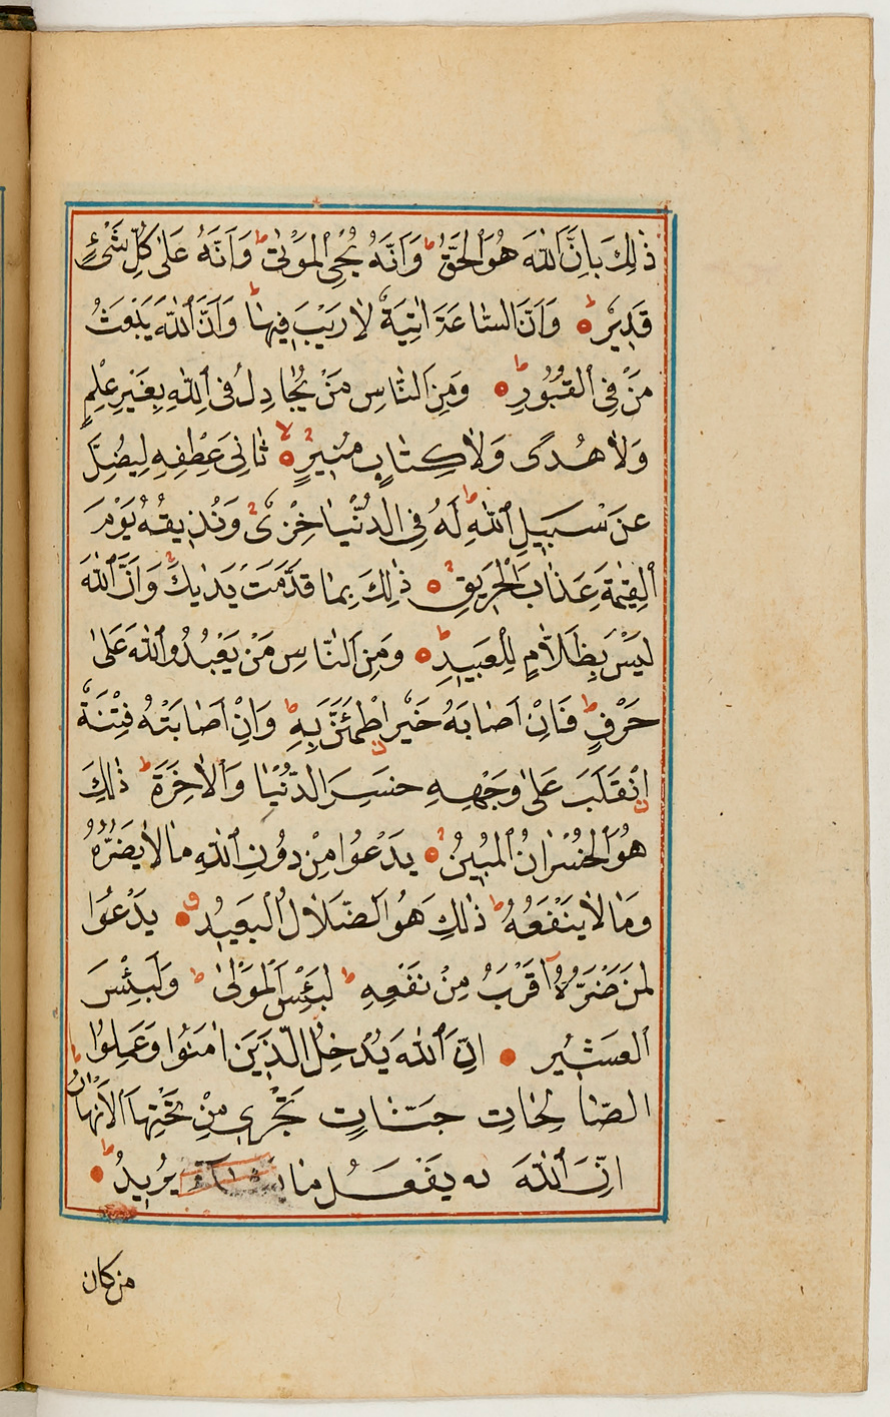 ذٰلِكَ بِاَنَّ اللّٰهَ هُوَ الْحَقُّ ط وَاَنَّهُ يُحْيِ الْمَوْتٰى ط وَاَنَّهُ عَلٰى كُلِّ شَىْءٍ
قَدِيرٌ ط وَاَنَّ السَّاعَةَ اٰتِيَةٌ لَا رَيْبَ فِيهَا ط وَاَنَّ اللّٰهَ يَبْعَثُ
مَنْ فِى الْقُبُورِ ط وَمِنَ النَّاسِ مَنْ يُجَادِلُ فِى اللّٰهِ بِغَيْرِ عِلْمٍ
وَلَا هُدًى وَلَا كِتَابٍ مُنِيرٍ لا ثَانِىَ عِطْفِهِ لِيُضِلَّ
عَنْ سَبِيلِ اللّٰهِ ط لَهُ فِى الدُّنْيَا خِزْىٌ وَنُذِيقُهُ يَوْمَ
الْقِيٰمَةِ عَذَابَ الْحَرِيقِ ذٰلِكَ بِمَا قَدَّمَتْ يَدَيكَ وَاَنَّ اللّٰهَ
لَيْسَ بِظَلَّامٍ لِلْعَبِيدِ ط وَمِنَ النَّاسِ مَنْ يَعْبُدُ اللّٰهَ عَلٰى
حَرْفٍ ط فَاِنْ اَصَابَهُ خَيْرٌ اطْمَئَنَّ بِهِ ط وَاِنْ اَصَابَتْهُ فِتْنَةٌ
اِنْقَلَبَ عَلٰى وَجْهِهِ خَسِرَ الدُّنْيَا وَالْاٰخِرَةَ ط ذٰلِكَ
هُوَ الْخُسْرَانُ الْمُبِينُ يَدْعُوا مِنْ دُونِ اللّٰهِ مَا لَا يَضُرُّهُ
وَمَا لَا يَنْفَعُهُ ط ذٰلِكَ هُوَ الضَّلَالُ الْبَعِيدُ يَدْعُوا
لَمَنْ ضَرُّهُ اَقْرَبُ مِنْ نَفْعِهِ ط لَبِئْسَ الْمَوْلٰى ط وَلَبِئْسَ
الْعَشِيرُ اِنَّ اللّٰهَ يُدْخِلُ الَّذِينَ اٰمَنُوا وَعَمِلُوا
الصَّالِحَاتِ جَنَّاتٍ تَجْرِى مِنْ تَحْتِهَا الْاَنْهَارُ ط
اِنَّ اللّٰهَ يَفْعَلُ مَا يُرِيدُ ط
من كان